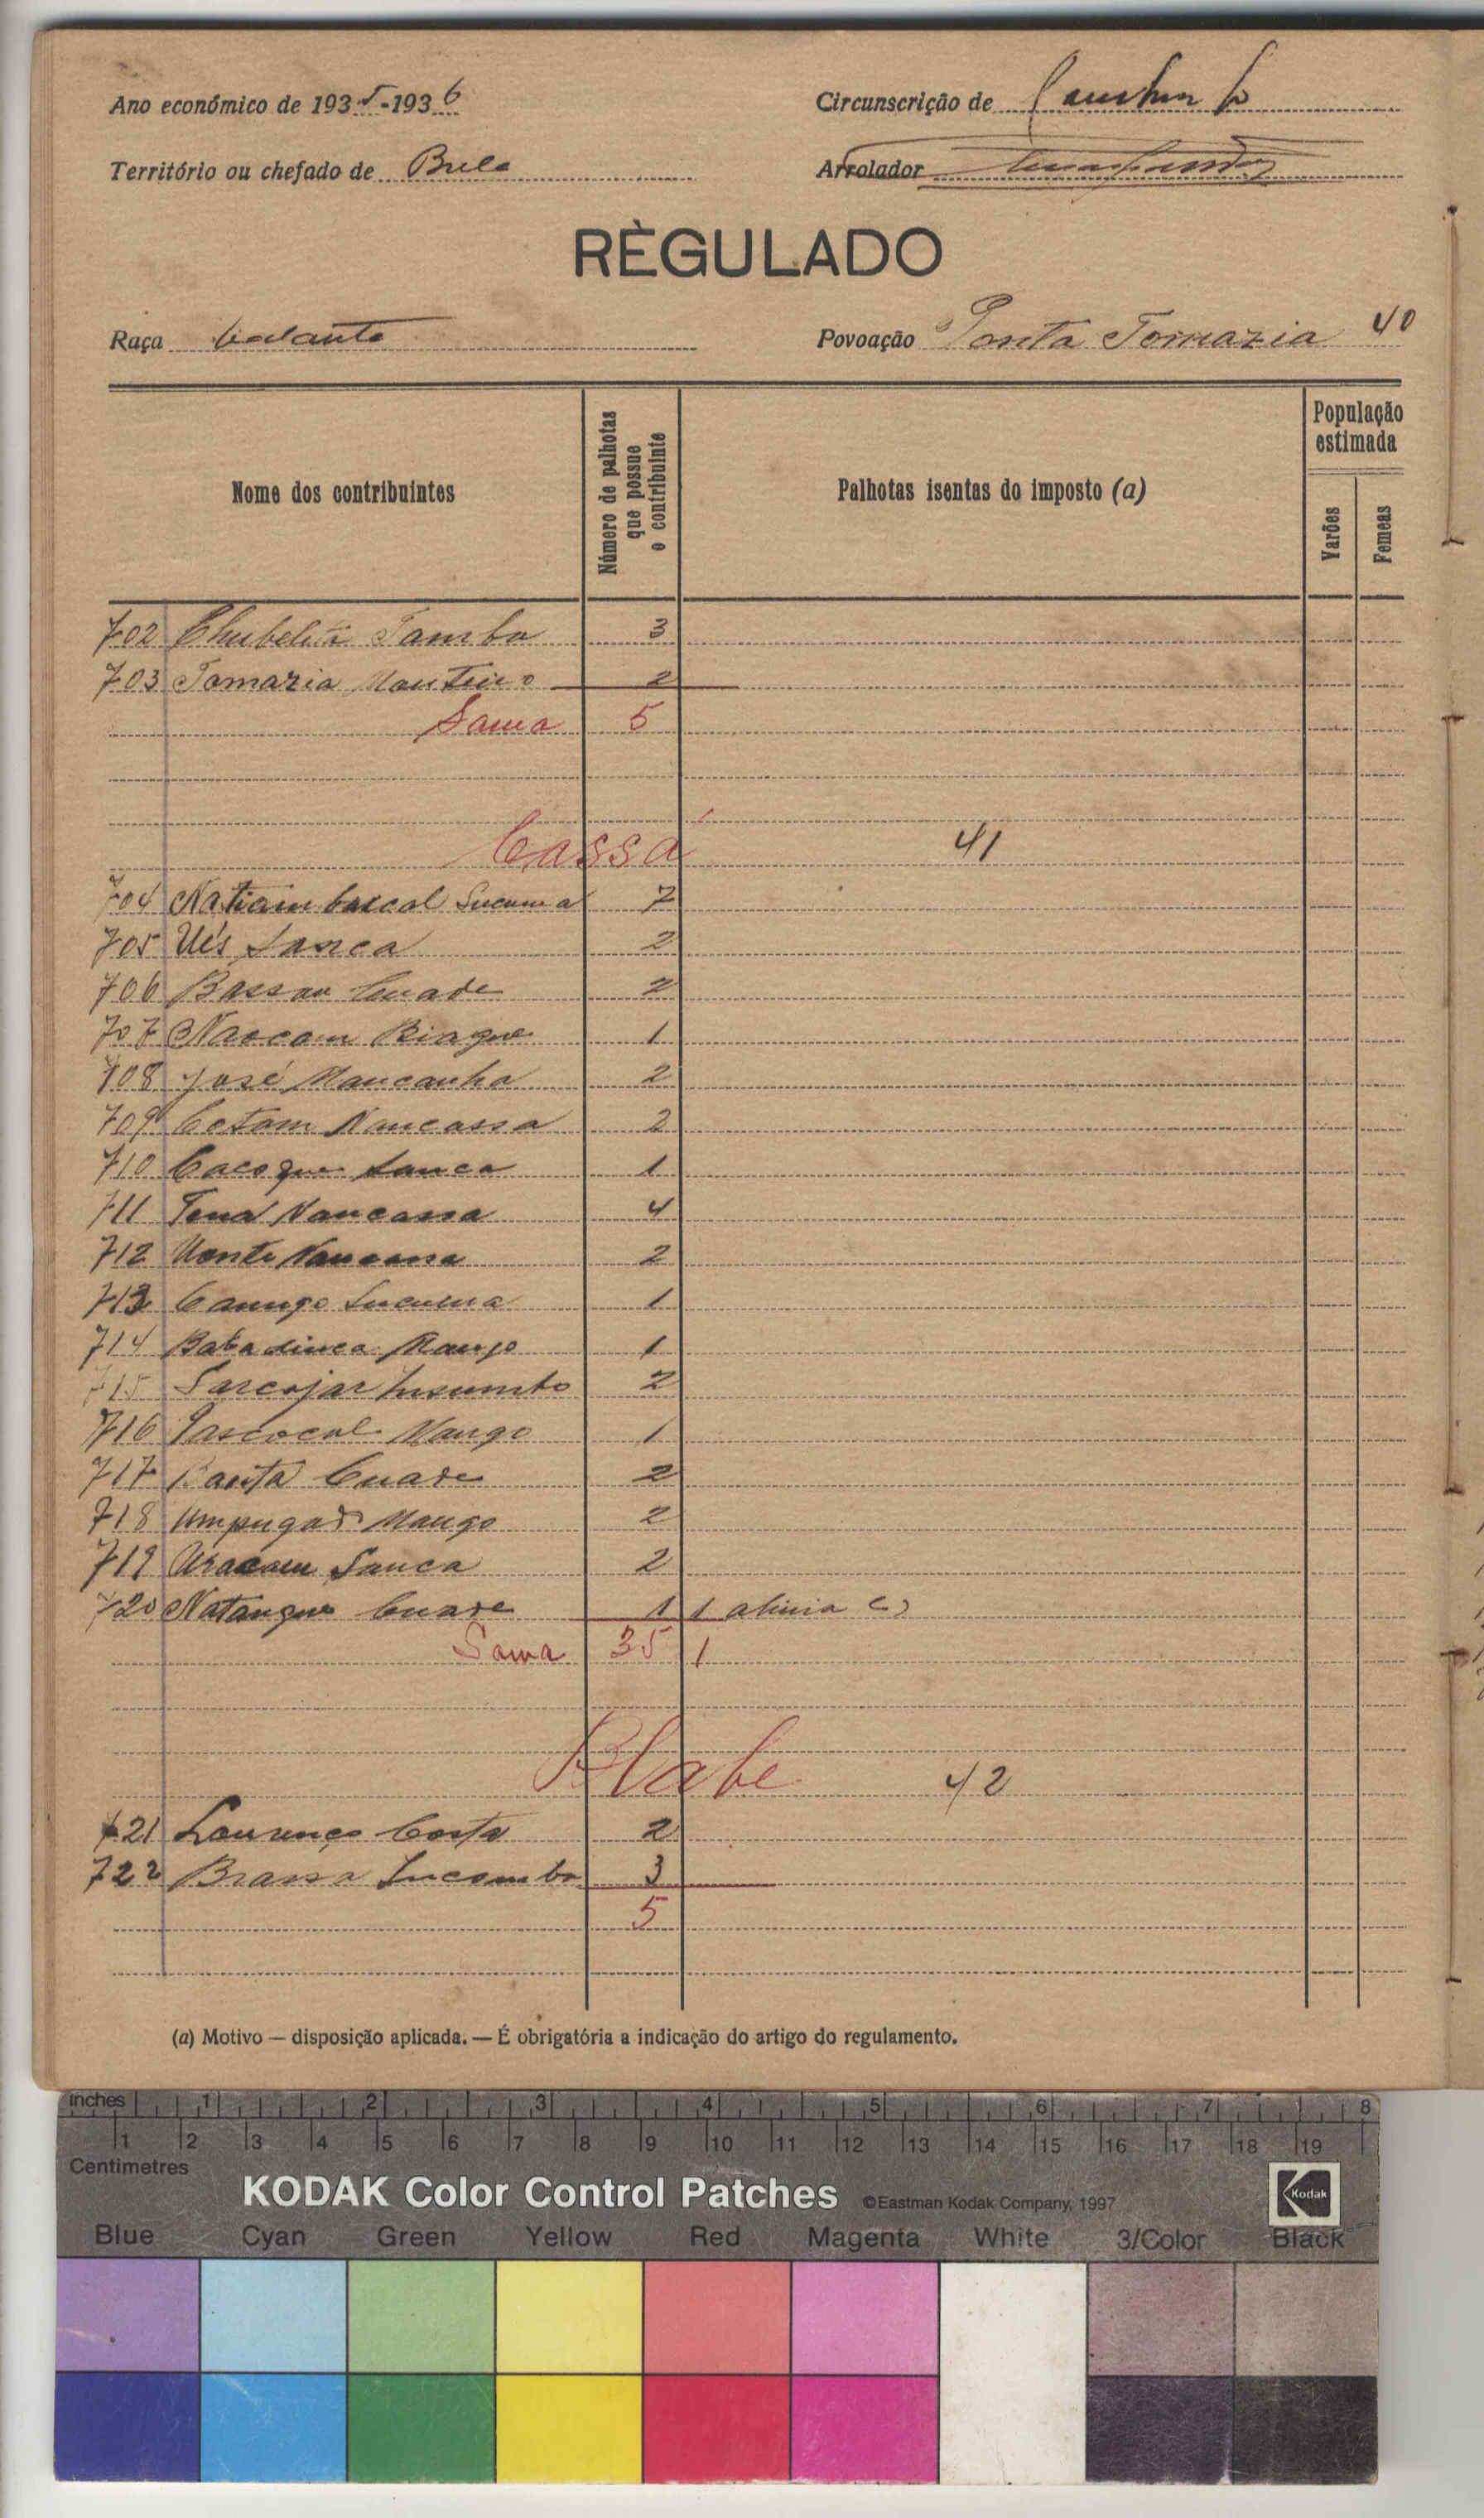 Ano económico de 1935-1936
Circunscrição de
Território ou chefado de Bula
Arrolador
RÈGULADO
Raça balanta
Povoação Ponta Tomazia 40
Nome dos contribuintes
Número de palhotas que possue o contribuinte
Palhotas isentas do imposto (a)
População estimada
Varões
Femeas
702 Tamba 3
703 Tomazia Monteiro 2
Soma 5
Cassá 41
704 Sucuma 7
705 Ués Sanca 2
706 Bassau Cuade 2
707 Biague 1
708 José Mancanha 2
709 Cotam Nancassa 2
710 Cacoque Sanca 1
711 Tena Nancassa 4
712 Uonte Nancassa 2
713 Canugo Sucuma 1
714 Babadinca Mango 1
715 2
716 Nango 1
717 Banta Cuade 2
718 Mango 2
719 Sanca 2
720 Natangue Cuade 1 1 alinia c)
Soma 35 1
Blabe 42
721 Lourenço Costa 2
722 Brassa 3
5
(a) Motivo — disposição aplicada. — É obrigatória a indicação do artigo do regulamento.
inches 1 2 3 4 5 6 7 8
1 2 3 4 5 6 7 8 9 10 11 12 13 14 15 16 17 18 19
Centimetres
KODAK Color Control Patches ©Eastman Kodak Company, 1997 Kodak
Blue Cyan Green Yellow Red Magenta White 3/Color Black